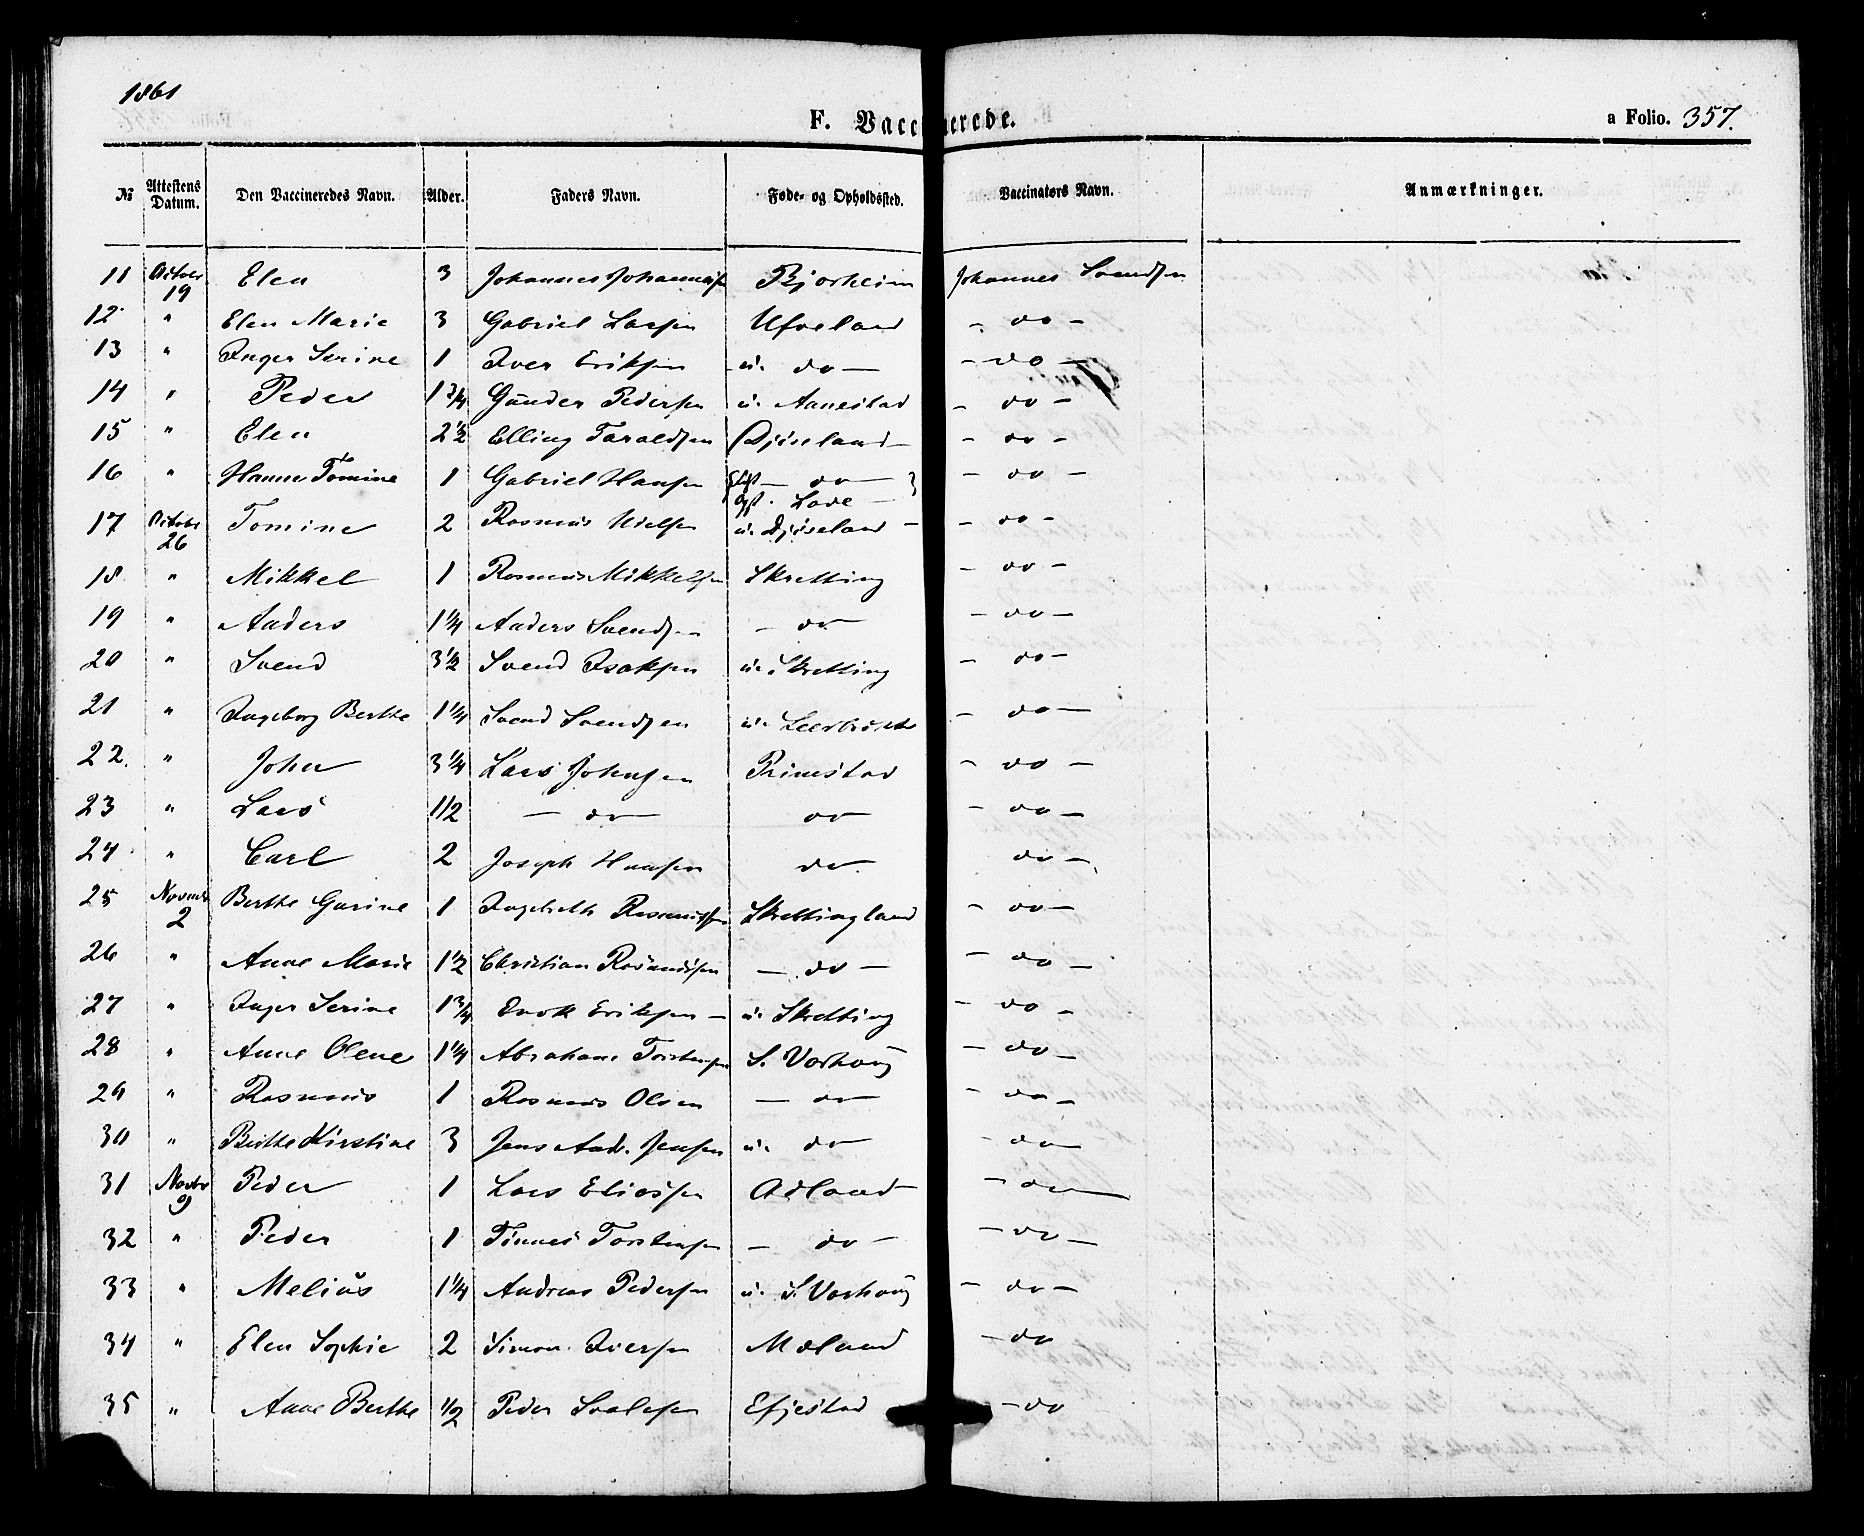 1861
F. Vaccinerede.
a Folio. 357.
No Attestens Datum. Den Vaccineredes Navn. Alder. Faders Navn. Føde- og Opholdssted. Vaccinators Navn. Anmærkninger.
11 Octobr 19 Elen 3 Johannes Johanness Bjorheim Johannes Svendsen
12 " Elen Marie 3 Gabriel Larsen Ufveland - do -
13 " Inger Serine 1 Iver Eriksen u. do - - do -
14 " Peder 1 3/4 Gunder Pedersen u. Aanestad - do -
15 " Elen 2 1/2 Elling Taraldsen Djøseland - - do -
16 " Hanne Tomine 1 Gabriel Hansen - do - - do -
17 Octobr 26 Tomine 2 Rasmus Nielsen u. Djøseland - - do -
18 " Mikkel 1 Rasmus Mikkelsen Skretting - do -
19 " Anders 1 1/4 Anders Svendsen - do - - do -
20 " Svend 3 1/2 Svend Isaksen u. Skretting - do -
21 " Ingeborg Berthe 1 1/4 Svend Svendsen u. - do -
22. " John 3 1/4 Lars Johnsen Primestad - do -
23 " Lars 1/2 - do - do - do -
24 " Carl 2 Joseph Hansen do do -
25 Novmbr 2 Berthe Gurine 1 Ingebreth Rasmussen Skrettingland - do -
26 " Anne Marie 1 1/2 Christian - do - - do -
27 " Inger Serine 1 3/4 Enok Eriksen - u. Skretting - do -
28 " Anne Olene 1 1/4 Abraham Torstensen S. Varhoug - do -
29 " Rasmus 1 Rasmus Olsen - do - - do -
30 " Berthe Kirstine 3 Jens Andr. Jensen u. do - - do -
31 Novbr 9 Peder 1 Lars Eliassen Adland - do -
32 " Peder 1 Tønnes Torstensen - do - - do -
33 " Melius 1 1/4 Andreas Pedersen u. S. Varhoug - do -
34 " Elen Sophie 2 Simon Iversen Mæland - do
35 " Anne Berthe 1/2 Peder Efjestad - do